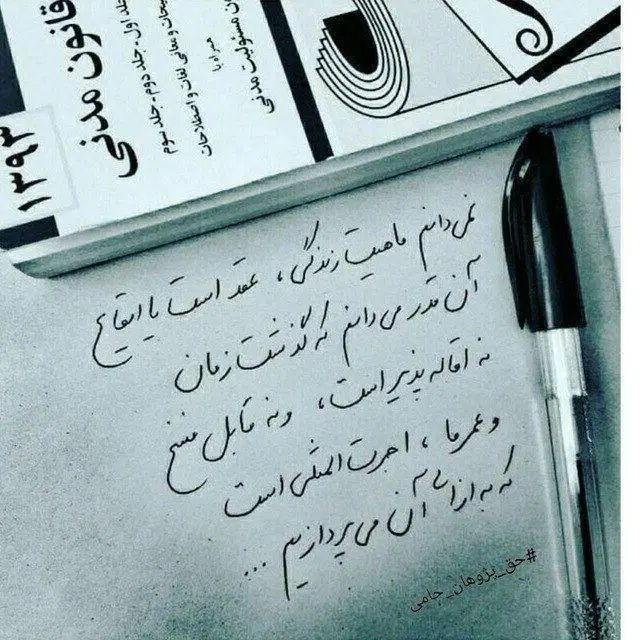 قانون مدنی
جلد اول - جلد دوم - جلد سوم
همراه با
معانی لغات و اصطلاحات
مسئولیت مدنی
۱۳۹۳
نمی دانم ماهیت زندگی، عقد است یا ایقاع
آن قدر می دانم که گذشت زمان
نه اقاله پذیر است، و نه قابل فسخ
و عمر ما، اجرت المثلی است
که به ازای آن می پردازیم ...
#حق_پژوهان_حامی